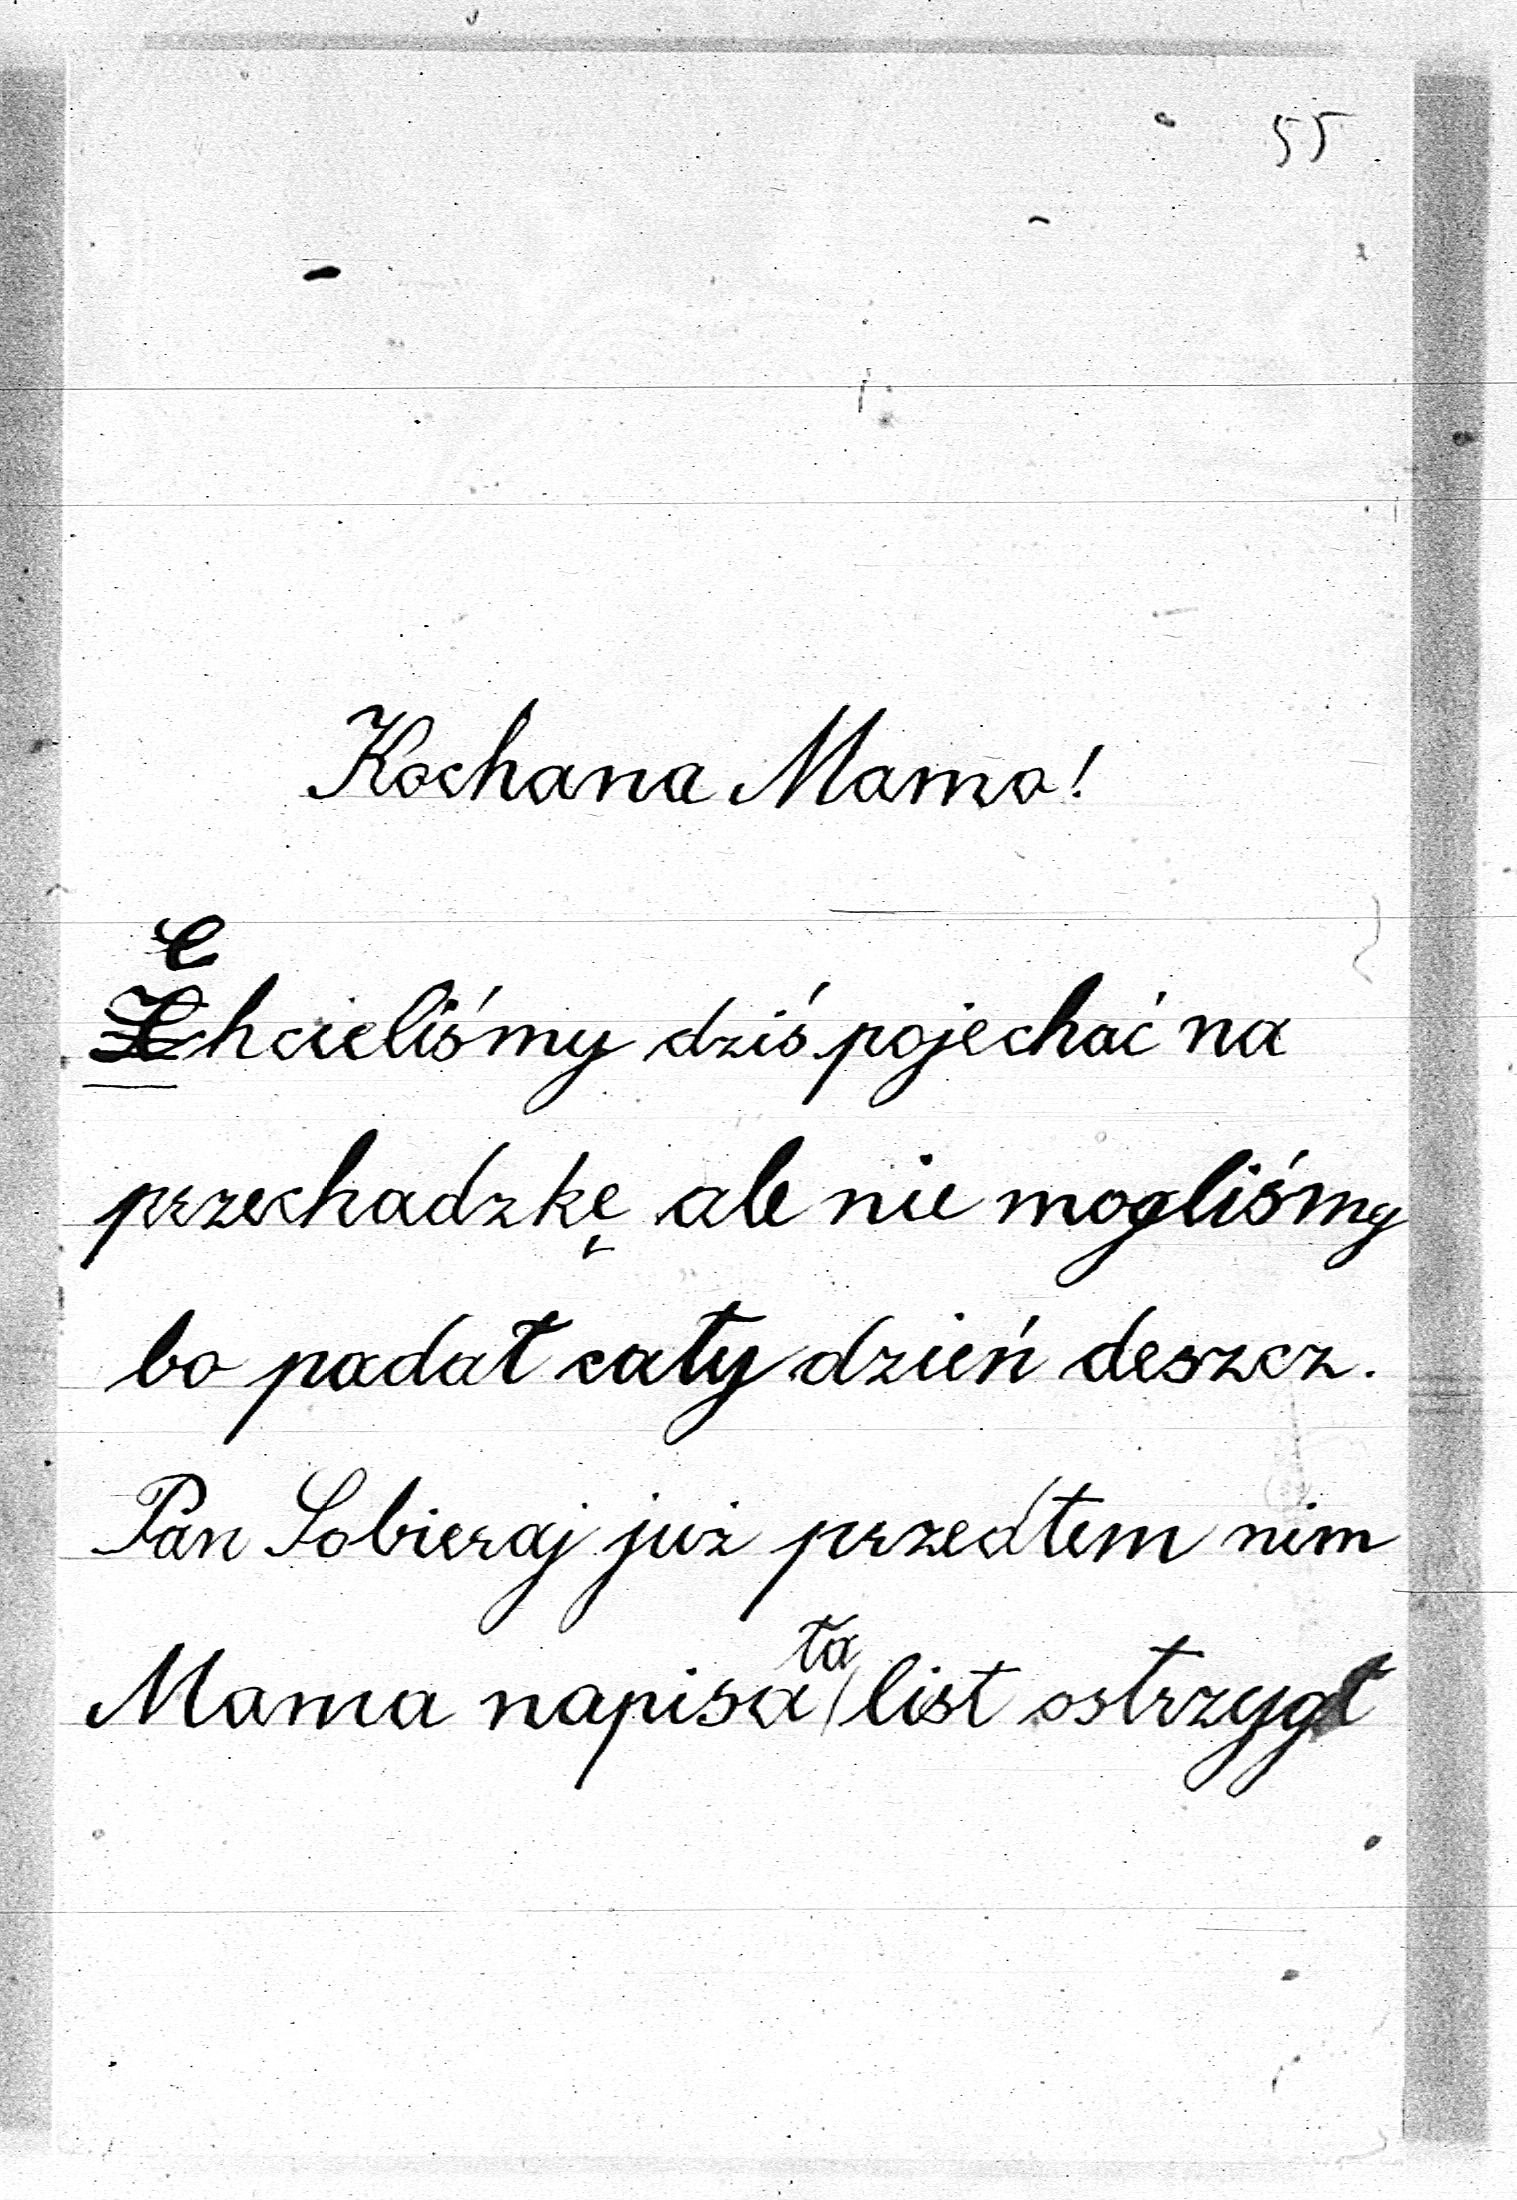 55
Kochana Mamo!
Chcieliśmy dziś pojechać na
przechadzkę ale nie mogliśmy
bo padał cały dzień deszcz.
Pan Sobieraj już przedtem nim
Mama napisała list ostrzygł